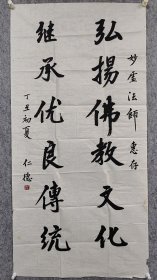 妙虚法師 惠存
弘揚佛教文化
继承优良傳统
丁丑初夏 仁德